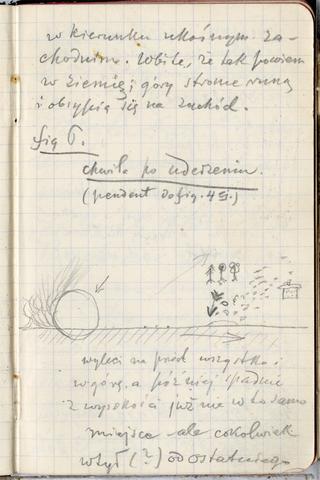 w kierunku ukośnym za-
chodnim. Wbite, że tak powiem
w ziemię; góry strome runą
i obsypią się na zachód.
fig 6.
chwila po uderzeniu.
(pendent do fig. 4
wyleci na przód wszystko i
w górę, a później spadnie
z wysokości już nie w to samo
miejsce ale cokolwiek
wtył (?) od ostatniego